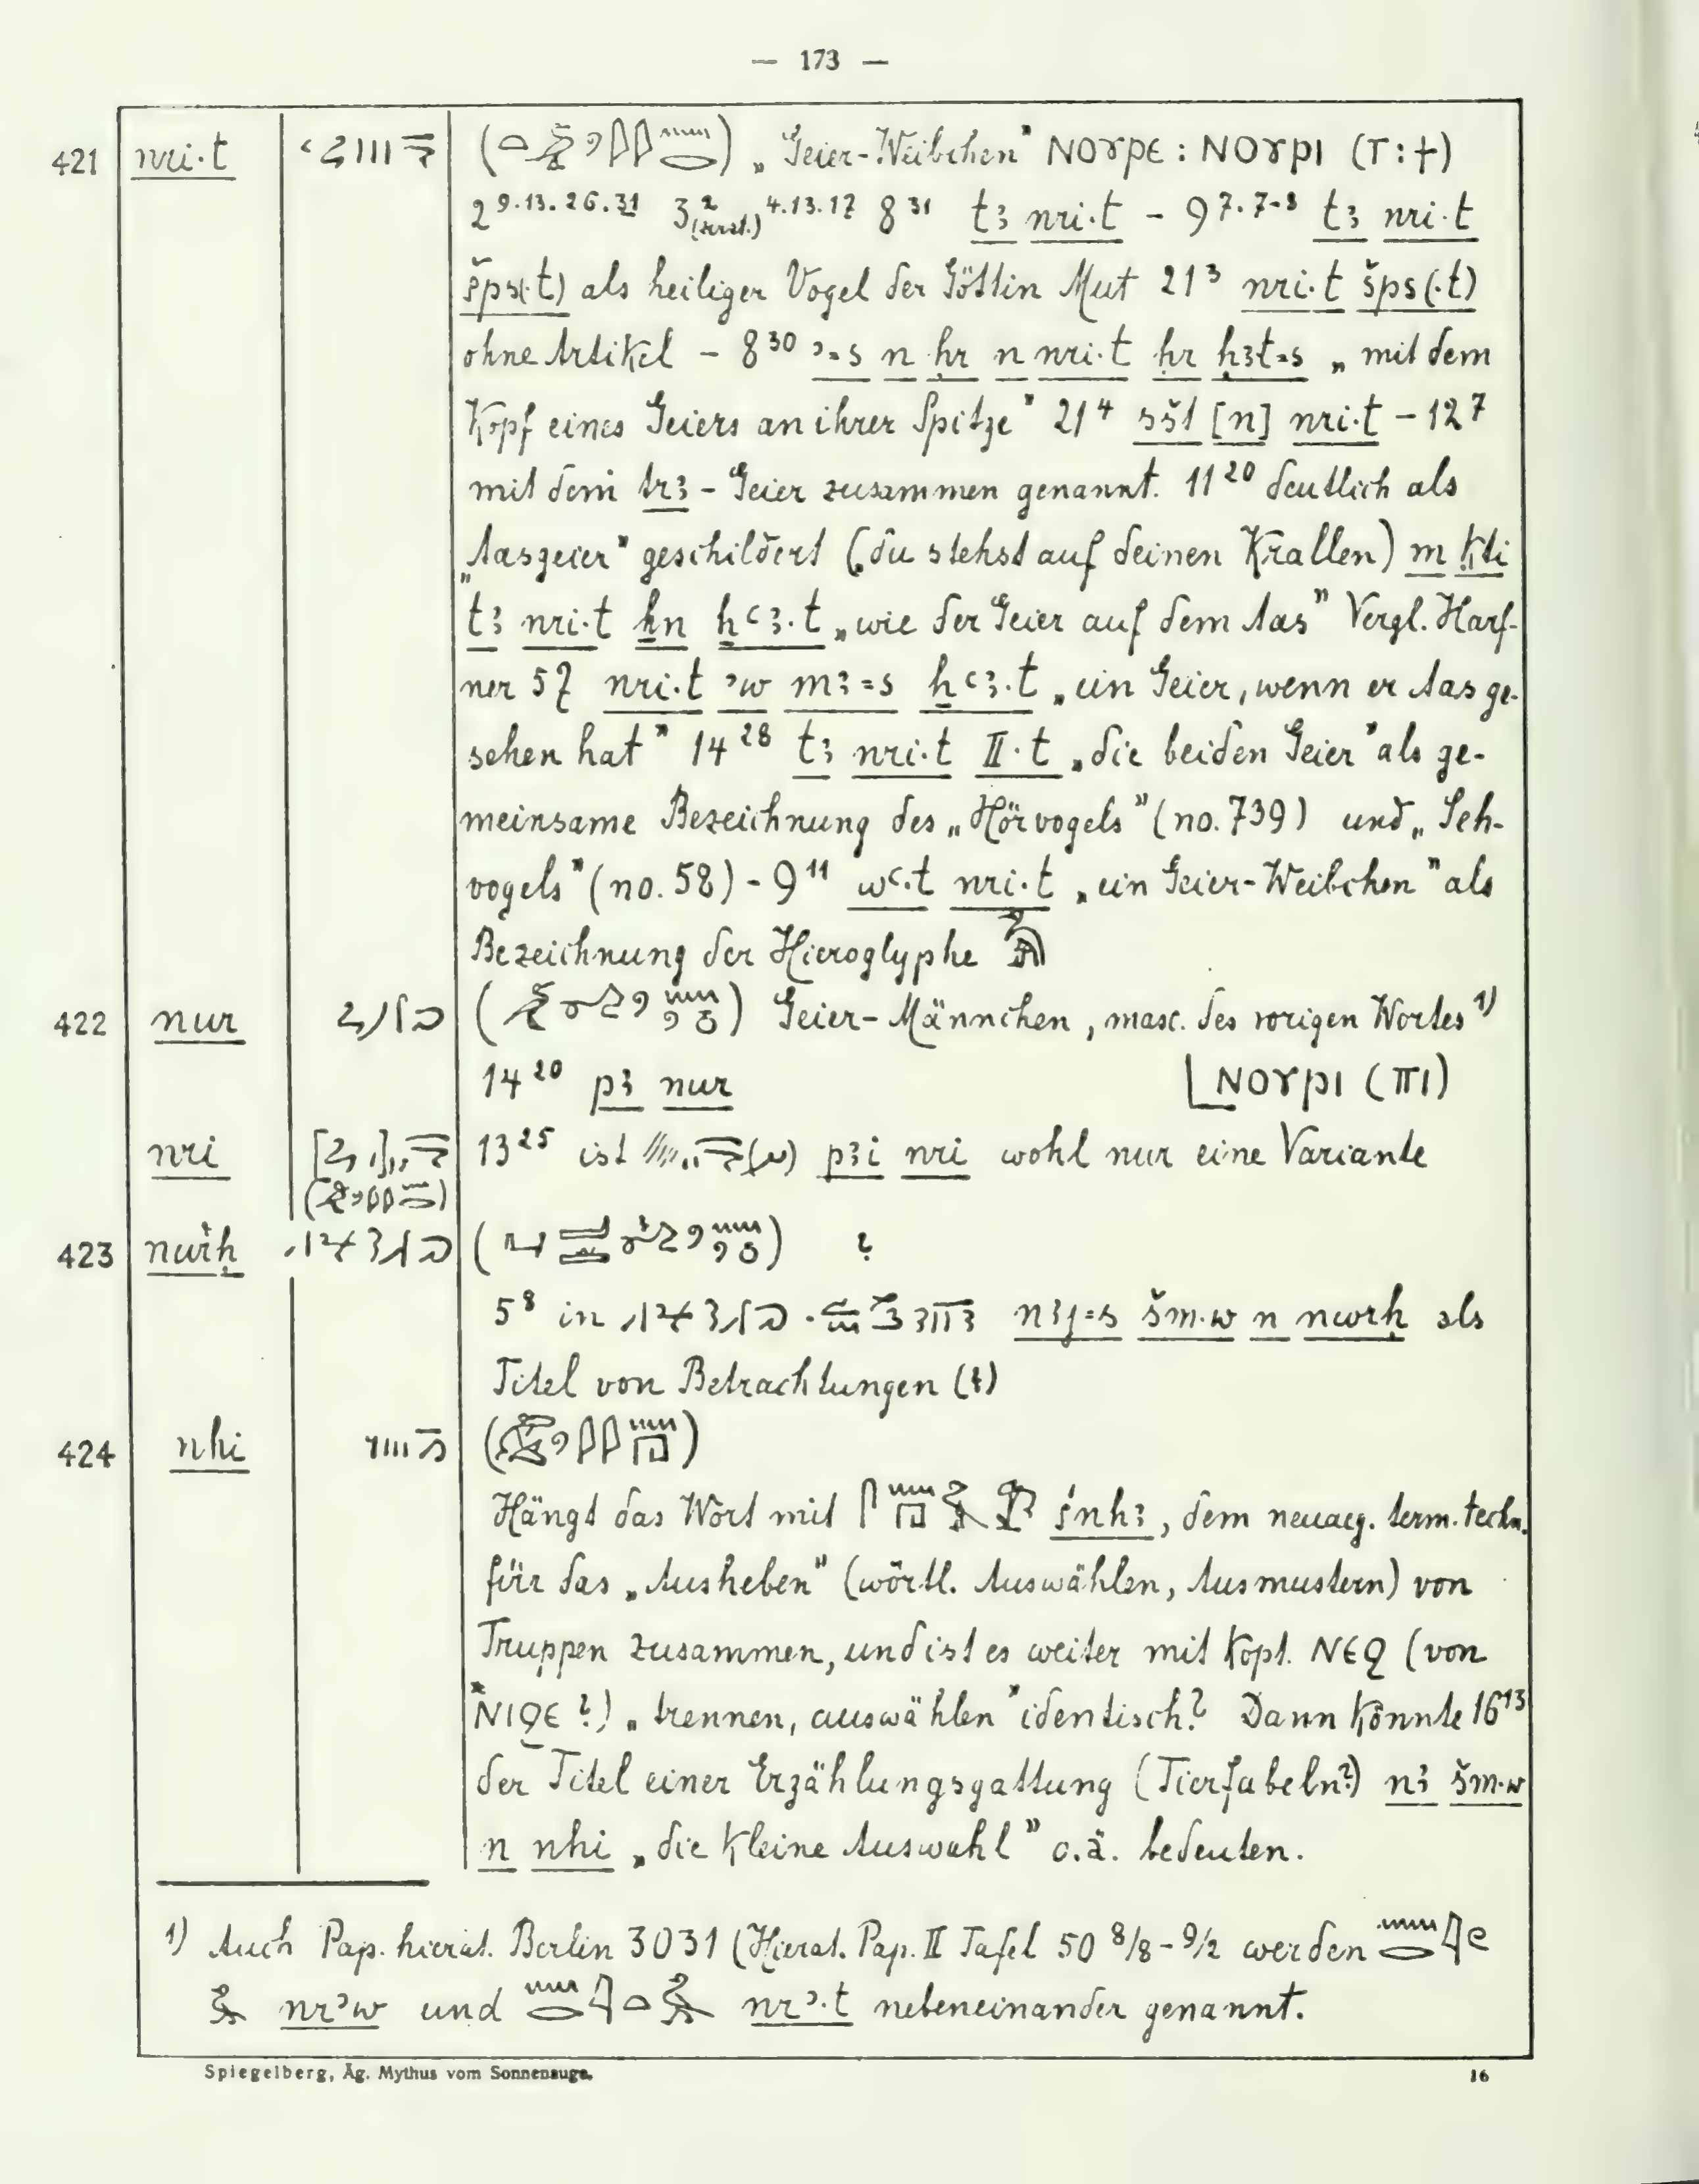 — 173 —
421 nri·t ( ) „Geier-Weibchen” ⲚⲞⲨⲢⲈ : ⲚⲞⲨⲢⲒ (Ⲧ:ϯ)
2 9.13.26.31 3 2 (zerst.) 4.13.17 8 31 tꜣ nri·t – 9 7.7-8 tꜣ nri·t
šps(·t) als heiliger Vogel der Göttin Mut 21 3 nri·t šps(·t)
ohne Artikel – 8 30 ꜥ=s n ḥr n nri·t ḥr ḥꜣt=s „mit dem
Kopf eines Geiers an ihrer Spitze” 21 4 sšt [n] nri·t – 12 7
mit dem trꜣ-Geier zusammen genannt. 11 20 deutlich als
„Aasgeier” geschildert (du stehst auf deinen Krallen) m ḳti
tꜣ nri·t ẖn ẖꜥꜣ·t „wie der Geier auf dem Aas” Vergl. Harf-
ner 57 nri·t ʾw mꜣ=s ẖꜥꜣ·t „ein Geier, wenn er Aas ge-
sehen hat” 14 28 tꜣ nri·t II·t „die beiden Geier” als ge-
meinsame Bezeichnung des „Hörvogels” (no. 739) und „Seh-
vogels” (no. 58) – 9 11 wꜥ·t nri·t „ein Geier-Weibchen” als
Bezeichnung der Hieroglyphe
422 nur ( ) Geier-Männchen, masc. des vorigen Wortes 1)
14 20 pꜣ nur ⲚⲞⲨⲢⲒ (ⲠⲒ)
nri 13 25 ist pꜣi nri wohl nur eine Variante
423 nwrḥ ( ) ?
5 8 in nꜣj=s šm·w n nwrḥ als
Titel von Betrachtungen (?)
424 nhi ( )
Hängt das Wort mit śnhꜣ, dem neuaeg. term. techn.
für das „Ausheben” (wörtl. Auswählen, Ausmustern) von
Truppen zusammen, und ist es weiter mit kopt. ⲚⲈϨ (von
*ⲚⲒϨⲈ?) „trennen, auswählen” identisch? Dann könnte 16 13
der Titel einer Erzählungsgattung (Tierfabeln?) nꜣ šm·w
n nhi „die kleine Auswahl” o.ä. bedeuten.
1) Auch Pap. hierat. Berlin 3031 (Hierat. Pap. II Tafel 50 8/8-9/2 werden
nrʾw und nrʾ·t nebeneinander genannt.
Spiegelberg, Äg. Mythus vom Sonnenauge. 16